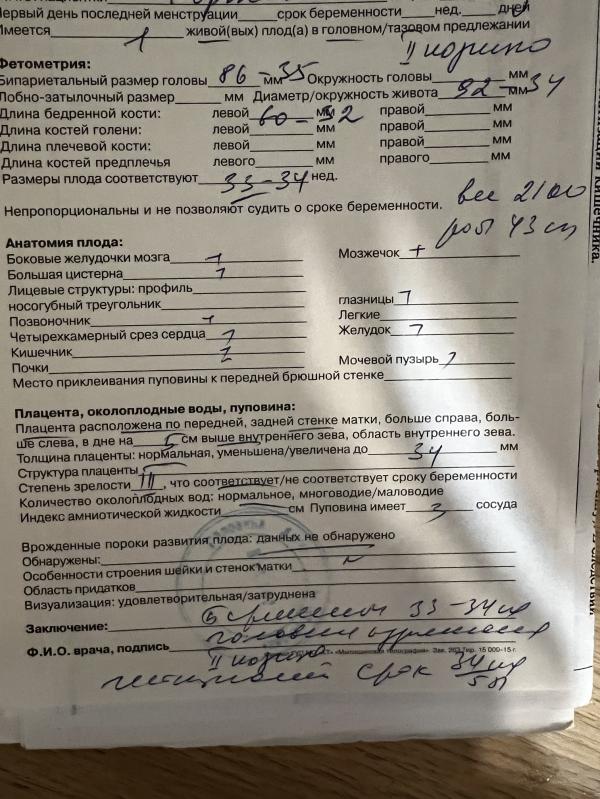 Первый день последней менструации срок беременности нед. дней
Имеется 1 живой(вых) плод(а) в головном/тазовом предлежании
II позиция
Фетометрия:
Бипариетальный размер головы 86 - 35 мм Окружность головы мм
Лобно-затылочный размер мм Диаметр/окружность живота 92 - 34 мм
Длина бедренной кости: левой 60 - 32 мм правой мм
Длина костей голени: левой мм правой мм
Длина плечевой кости: левой мм правой мм
Длина костей предплечья левого мм правого мм
Размеры плода соответствуют 33-34 нед.
вес 2100
Непропорциональны и не позволяют судить о сроке беременности.
рост 43 см
Анатомия плода:
Боковые желудочки мозга Мозжечок +
Большая цистерна
Лицевые структуры: профиль
носогубный треугольник глазницы
Позвоночник Легкие
Четырехкамерный срез сердца Желудок
Кишечник
Почки Мочевой пузырь
Место приклеивания пуповины к передней брюшной стенке
Плацента, околоплодные воды, пуповина:
Плацента расположена по передней, задней стенке матки, больше справа, боль-
ше слева, в дне на 5 см выше внутреннего зева, область внутреннего зева.
Толщина плаценты: нормальная, уменьшена/увеличена до 34 мм
Структура плаценты
Степень зрелости III, что соответствует/не соответствует сроку беременности
Количество околоплодных вод: нормальное, многоводие/маловодие
Индекс амниотической жидкости см Пуповина имеет 3 сосуда
Врожденные пороки развития плода: данных не обнаружено
Обнаружены:
Особенности строения шейки и стенок матки
Область придатков
Визуализация: удовлетворительная/затруднена
Заключение: Беременность 33-34 нед
головное предлежание
Ф.И.О. врача, подпись II позиция «Мытищинская типография». Зак. Тир. 15 000-15 г.
срок 34 нед
5 д
кишечника.